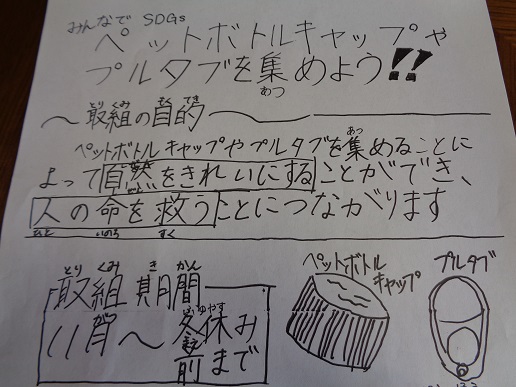 みんなで SDGs
ペットボトルキャップや
プルタブを集めよう!!
あつ
とり くみ もく てき
〜取組の目的〜
あつ
ペットボトルキャップやプルタブを集めることに
よって自然をきれいにすることができ、
人の命を救うことにつながります
ひと いのち すく
とり くみ き かん
取組期間
ふゆやす
11月〜冬休み
前まで
ペットボトル
キャップ
プルタブ